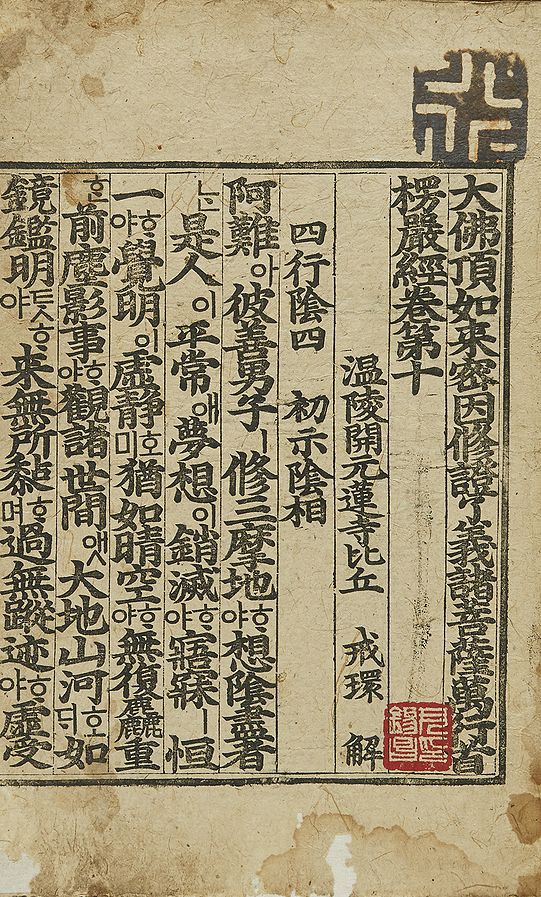 大佛頂如来密因修證了義諸菩薩萬行首
楞嚴經卷第十
温陵開元蓮寺比丘 戒環 解
四行陰四 初示陰相
阿難아彼善男子ㅣ修三摩地ᄒᆞ야想陰盡者
ᄂᆞᆫ是人이平常애夢想이銷滅ᄒᆞ야寤寐ㅣ恒
一ᄒᆞ야覺明이虛静호미猶如晴空ᄒᆞ야無復麤重
ᄒᆞᆫ前塵影事ᄒᆞ야觀諸世間앳大地山河호ᄃᆡ如
鏡鑑明ᄃᆞᆺᄒᆞ야来無所黏ᄒᆞ며過無蹤迹ᄒᆞ야虛受